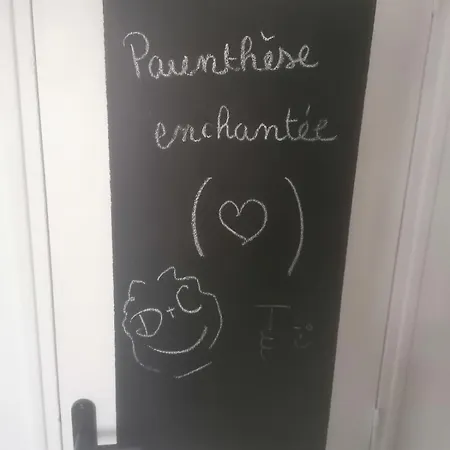 Parenthèse
enchantée
(♡)
D+C
T